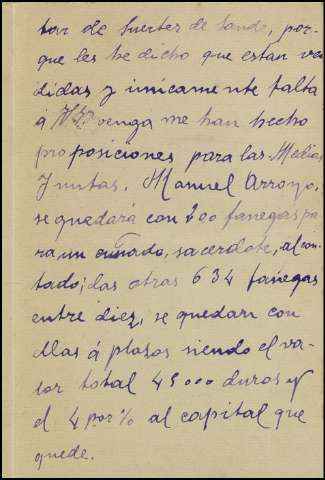 tar de suertes de                , por-
que les he dicho que estan ven
didas y únicamente falta
á        venga me han hecho
proposiciones para las Medias
Juntas. Manuel Arroyo,
se quedará con 200 fanegas pa
ra un cuñado, sacerdote, al con-
tado; las otras 634 fanegas
entre diez, se quedan con
ellas á plasos siendo el va-
lor total 45000 duros y
el 4 por % al capital que
quede.